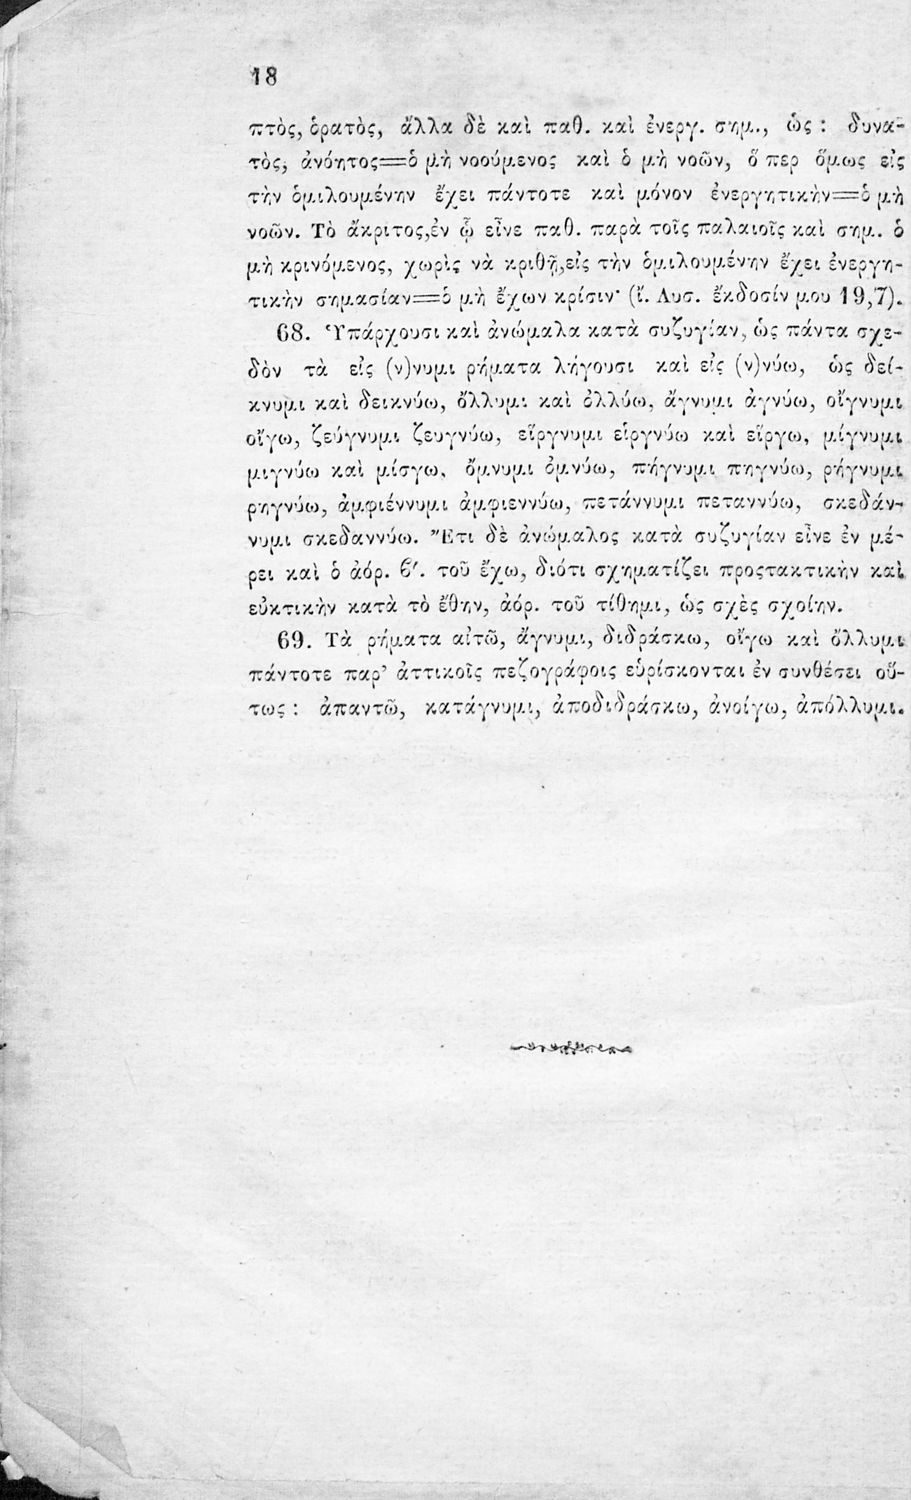 18
πτὸς, ὁρατὸς, ἄλλα δὲ καὶ παθ. καὶ ἐνεργ. σημ., ὡς : δυνα-
τὸς, ἀνόητος=ὁ μὴ νοούμενος καὶ ὁ μὴ νοῶν, ὅ περ ὅμως εἰς
τὴν ὁμιλουμένην ἔχει πάντοτε καὶ μόνον ἐνεργητικὴν=ὁ μὴ
νοῶν. Τὸ ἄκριτος,ἐν ᾧ εἶνε παθ. παρὰ τοῖς παλαιοῖς καὶ σημ. ὁ
μὴ κρινόμενος, χωρὶς νὰ κριθῇ,εἰς τὴν ὁμιλουμένην ἔχει ἐνεργη-
τικὴν σημασίαν=ὁ μὴ ἔχων κρίσιν· (ἴ. Λυσ. ἔκδοσίν μου 19,7).
68. Ὑπάρχουσι καὶ ἀνώμαλα κατὰ συζυγίαν, ὡς πάντα σχε-
δὸν τὰ εἰς (ν)νυμι ρήματα λήγουσι καὶ εἰς (ν)νύω, ὡς δεί-
κνυμι καὶ δεικνύω, ὄλλυμι καὶ ὀλλύω, ἄγνυμι ἀγνύω, οἴγνυμι
οἴγω, ζεύγνυμι ζευγνύω, εἵργνυμι εἱργνύω καὶ εἵργω, μίγνυμι
μιγνύω καὶ μίσγω, ὄμνυμι ὀμνύω, πήγνυμι πηγνύω, ρήγνυμι
ρηγνύω, ἀμφιέννυμι ἀμφιεννύω, πετάννυμι πεταννύω, σκεδάν-
νυμι σκεδαννύω. Ἔτι δὲ ἀνώμαλος κατὰ συζυγίαν εἶνε ἐν μέ-
ρει καὶ ὁ ἀόρ. β'. τοῦ ἔχω, διότι σχηματίζει προςτακτικὴν καὶ
εὐκτικὴν κατὰ τὸ ἔθην, ἀόρ. τοῦ τίθημι, ὡς σχὲς σχοίην.
69. Τὰ ρήματα αἰτῶ, ἄγνυμι, διδράσκω, οἴγω καὶ ὄλλυμι
πάντοτε παρ' ἀττικοῖς πεζογράφοις εὑρίσκονται ἐν συνθέσει οὕ-
τως : ἀπαντῶ, κατάγνυμι, ἀποδιδράσκω, ἀνοίγω, ἀπόλλυμι.